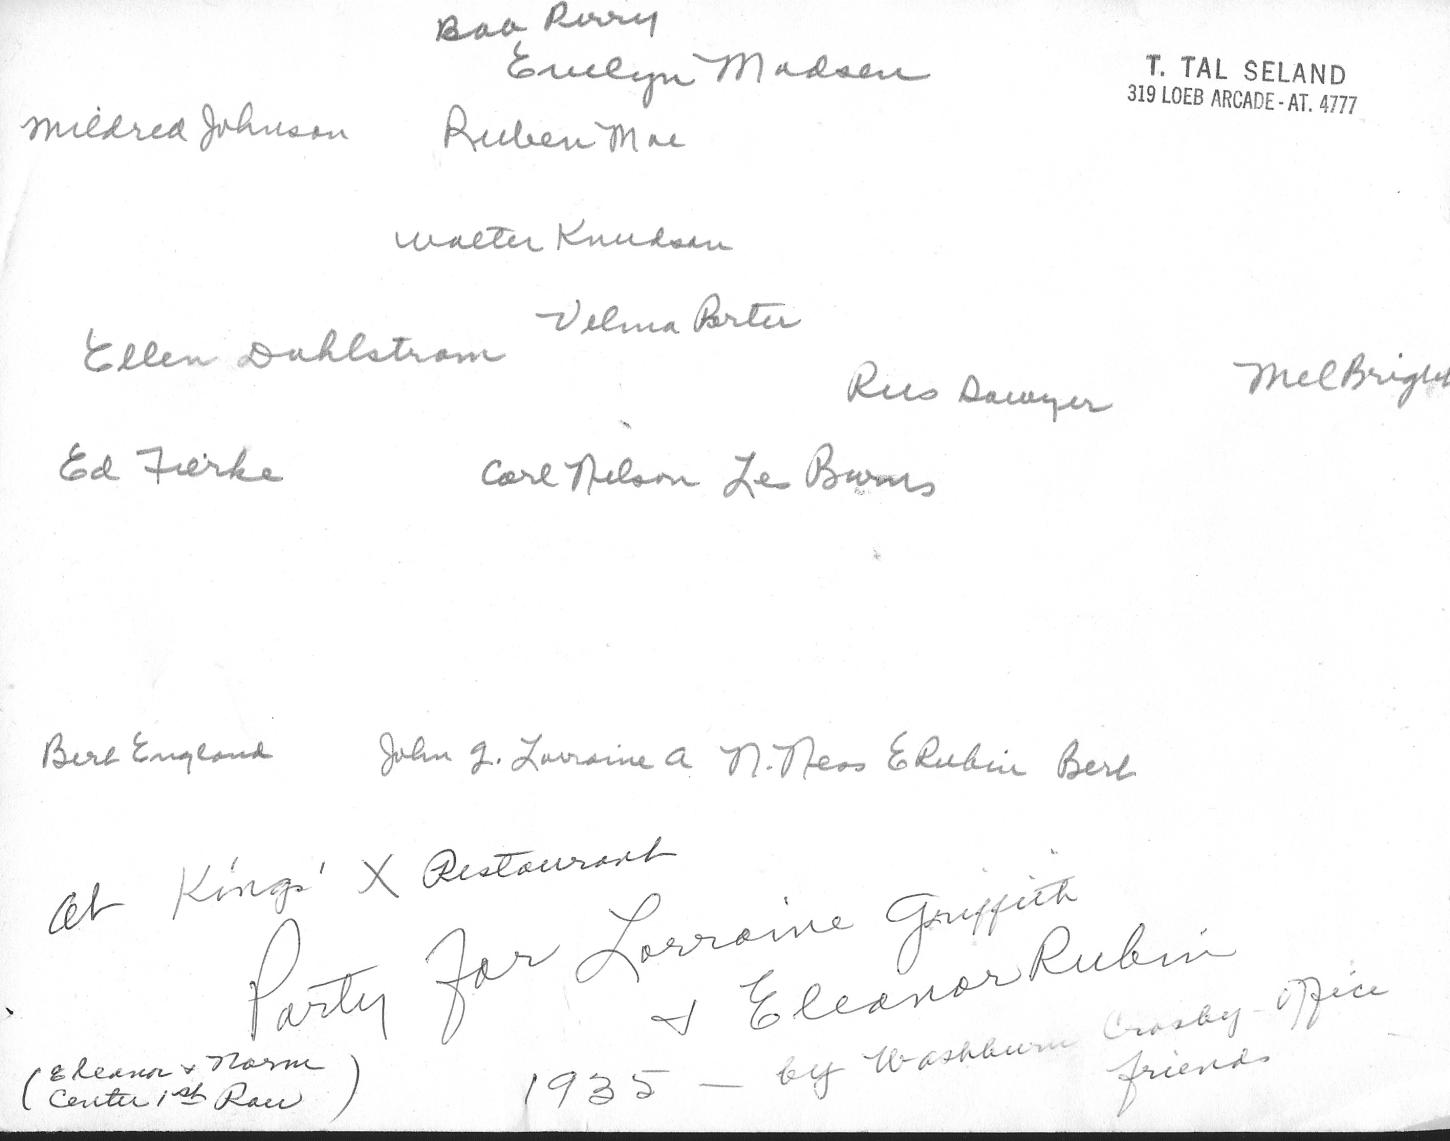 Bob Perry
Evelyn Madsen
T. TAL SELAND
319 LOEB ARCADE - AT. 4777
Mildred Johnson Ruben Moe
Walter Knudson
Velma Porter
Ellen Dahlstrom
Mel Bright
Russ Sawyer
Ed Fierke Carl Nelson Les Burns
Bert England John G. Lorraine A N. Ness E Rubin Bert
At Kings' X Restaurant
Party for Lorraine Griffith
& Eleanor Rubin
1935 — by Washburn Crosby Office
friends
(Eleanor & Norm
Center 1st Row)